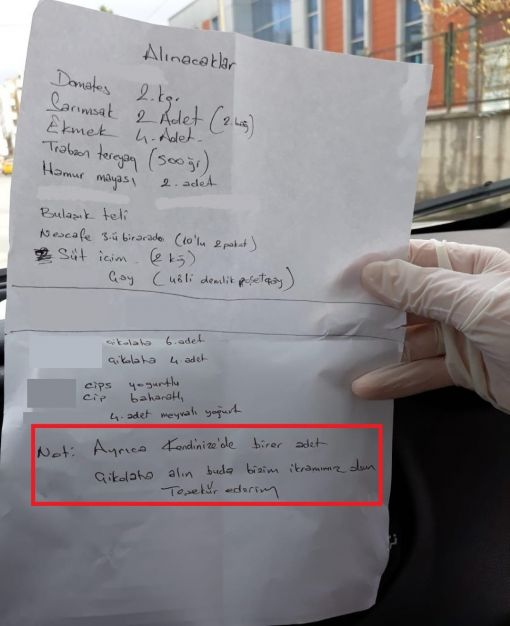 Alınacaklar
Domates 2.kgr.
Sarımsak 2 Adet (2.bağ)
Ekmek 4.Adet.
Trabzon tereyağ (500 ğr)
Hamur mayası 2.adet
Bulaşık teli
Nescafe 3.ü birarada (10'lu 2 paket)
Süt içim. (2 kğ)
Çay ( demlik poşetçay)
Çikolata 6.adet
Çikolata 4.adet
Cips yoğurtlu
Cip baharatlı
4.adet meyvalı yoğurt
Not: Ayrıca Kendinize'de birer adet
Çikolata alın buda bizim ikramımız olsun
Teşekür ederim